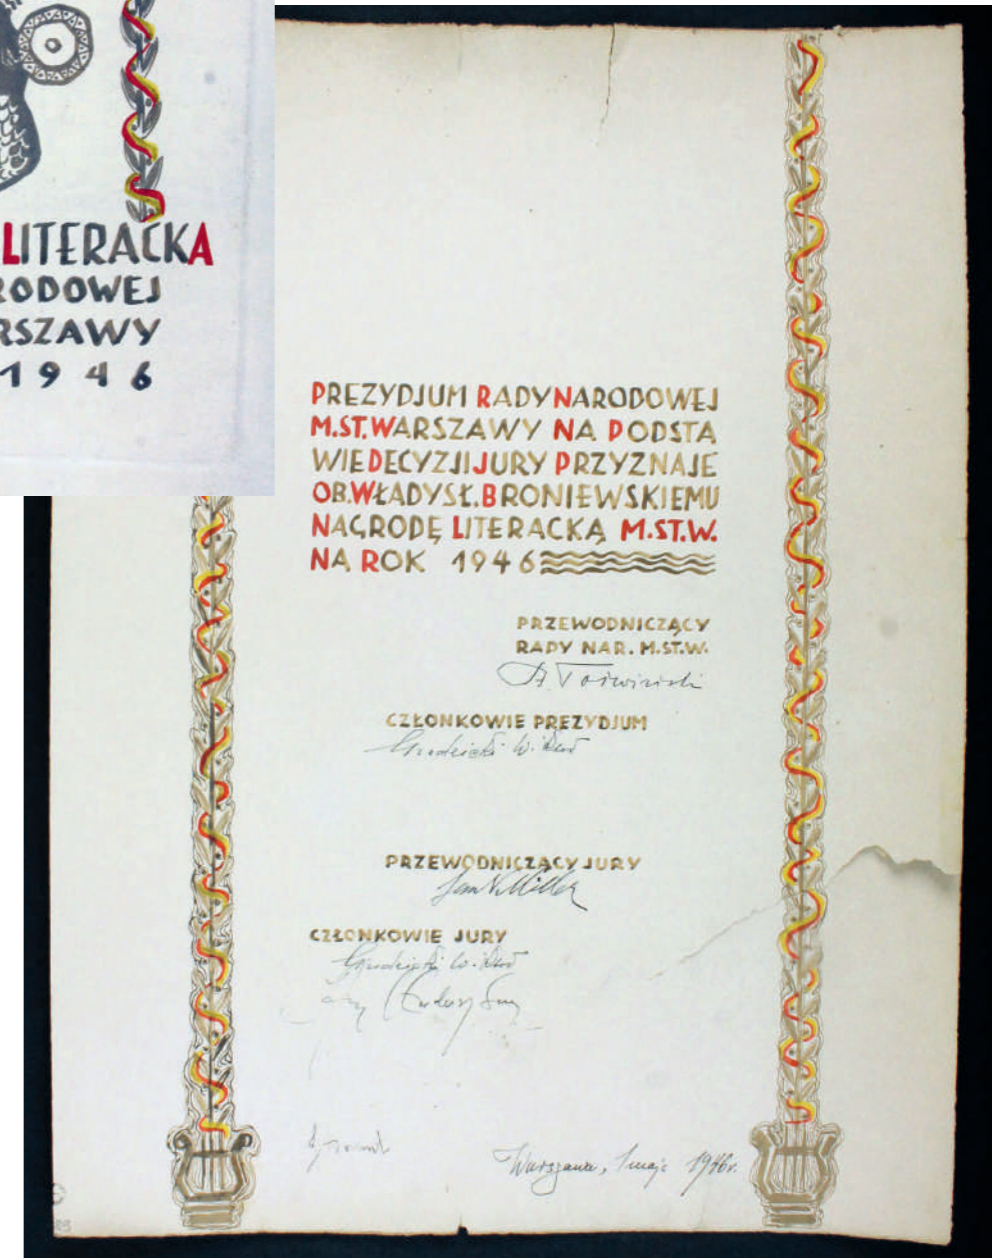 LITERACKA
RODOWEJ
RSZAWY
1946
PREZYDJUM RADY NARODOWEJ
M.ST. WARSZAWY NA PODSTA
WIE DECYZJI JURY PRZYZNAJE
OB. WŁADYSŁ. BRONIEWSKIEMU
NAGRODĘ LITERACKĄ M.ST.W.
NA ROK 1946
PRZEWODNICZĄCY
RADY NAR. M.ST.W.
CZŁONKOWIE PREZYDJUM
PRZEWODNICZĄCY JURY
Jan N. Miller
CZŁONKOWIE JURY
Warszawa, 1 maja 1946r.